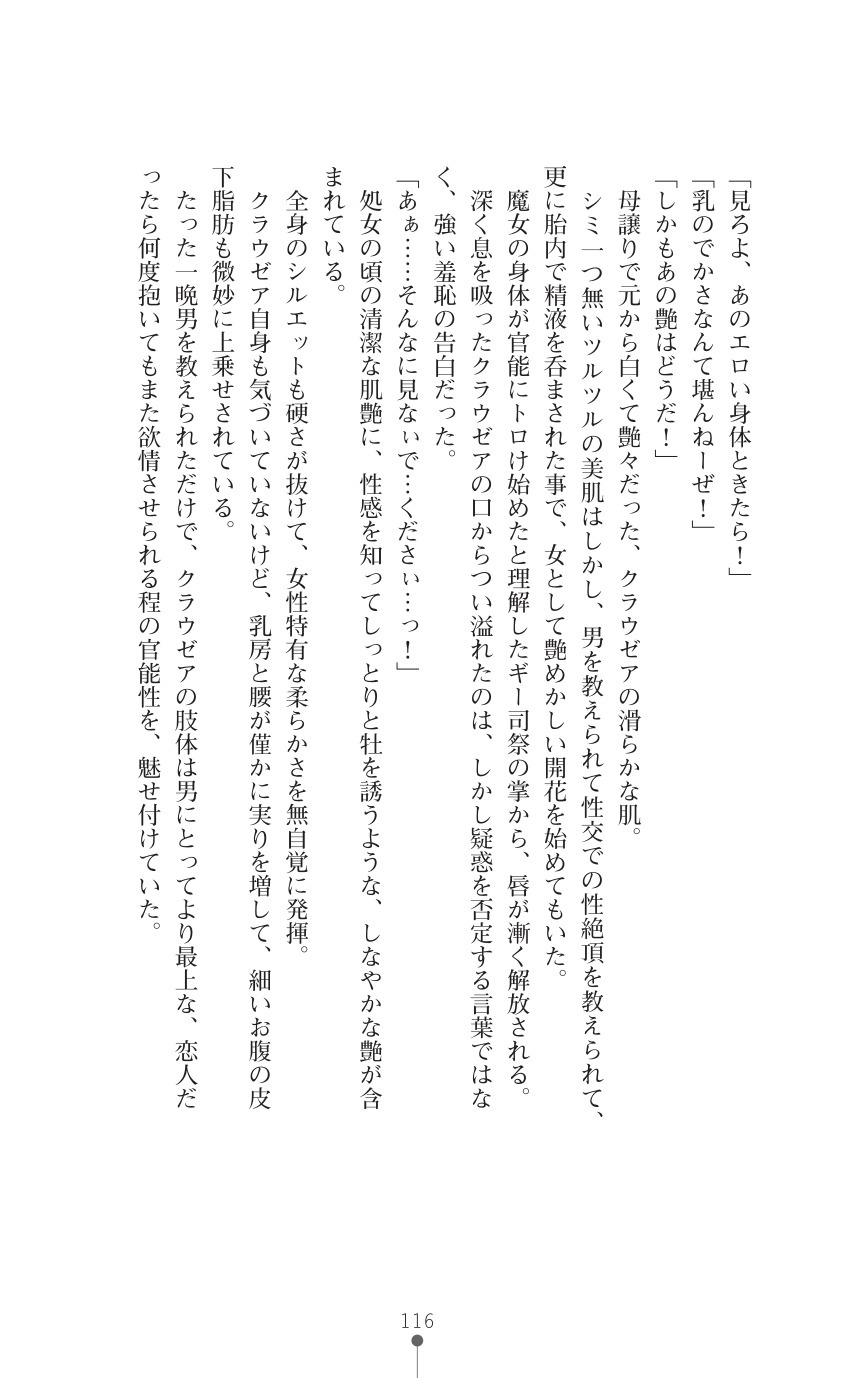 「見ろよ、あのエロい身体ときたら！」
「乳のでかさなんて堪んねーぜ！」
「しかもあの艶はどうだ！」
母譲りで元から白くて艶々だった、クラウゼアの滑らかな肌。
シミ一つ無いツルツルの美肌はしかし、男を教えられて性交での性絶頂を教えられて、
更に胎内で精液を呑まされた事で、女として艶めかしい開花を始めてもいた。
魔女の身体が官能にトロけ始めたと理解したギー司祭の掌から、唇が漸く解放される。
深く息を吸ったクラウゼアの口からつい溢れたのは、しかし疑惑を否定する言葉ではな
く、強い羞恥の告白だった。
「あぁ……そんなに見なぃで…くださぃ…っ！」
処女の頃の清潔な肌艶に、性感を知ってしっとりと牡を誘うような、しなやかな艶が含
まれている。
全身のシルエットも硬さが抜けて、女性特有な柔らかさを無自覚に発揮。
クラウゼア自身も気づいていないけど、乳房と腰が僅かに実りを増して、細いお腹の皮
下脂肪も微妙に上乗せされている。
たった一晩男を教えられただけで、クラウゼアの肢体は男にとってより最上な、恋人だ
ったら何度抱いてもまた欲情させられる程の官能性を、魅せ付けていた。
116